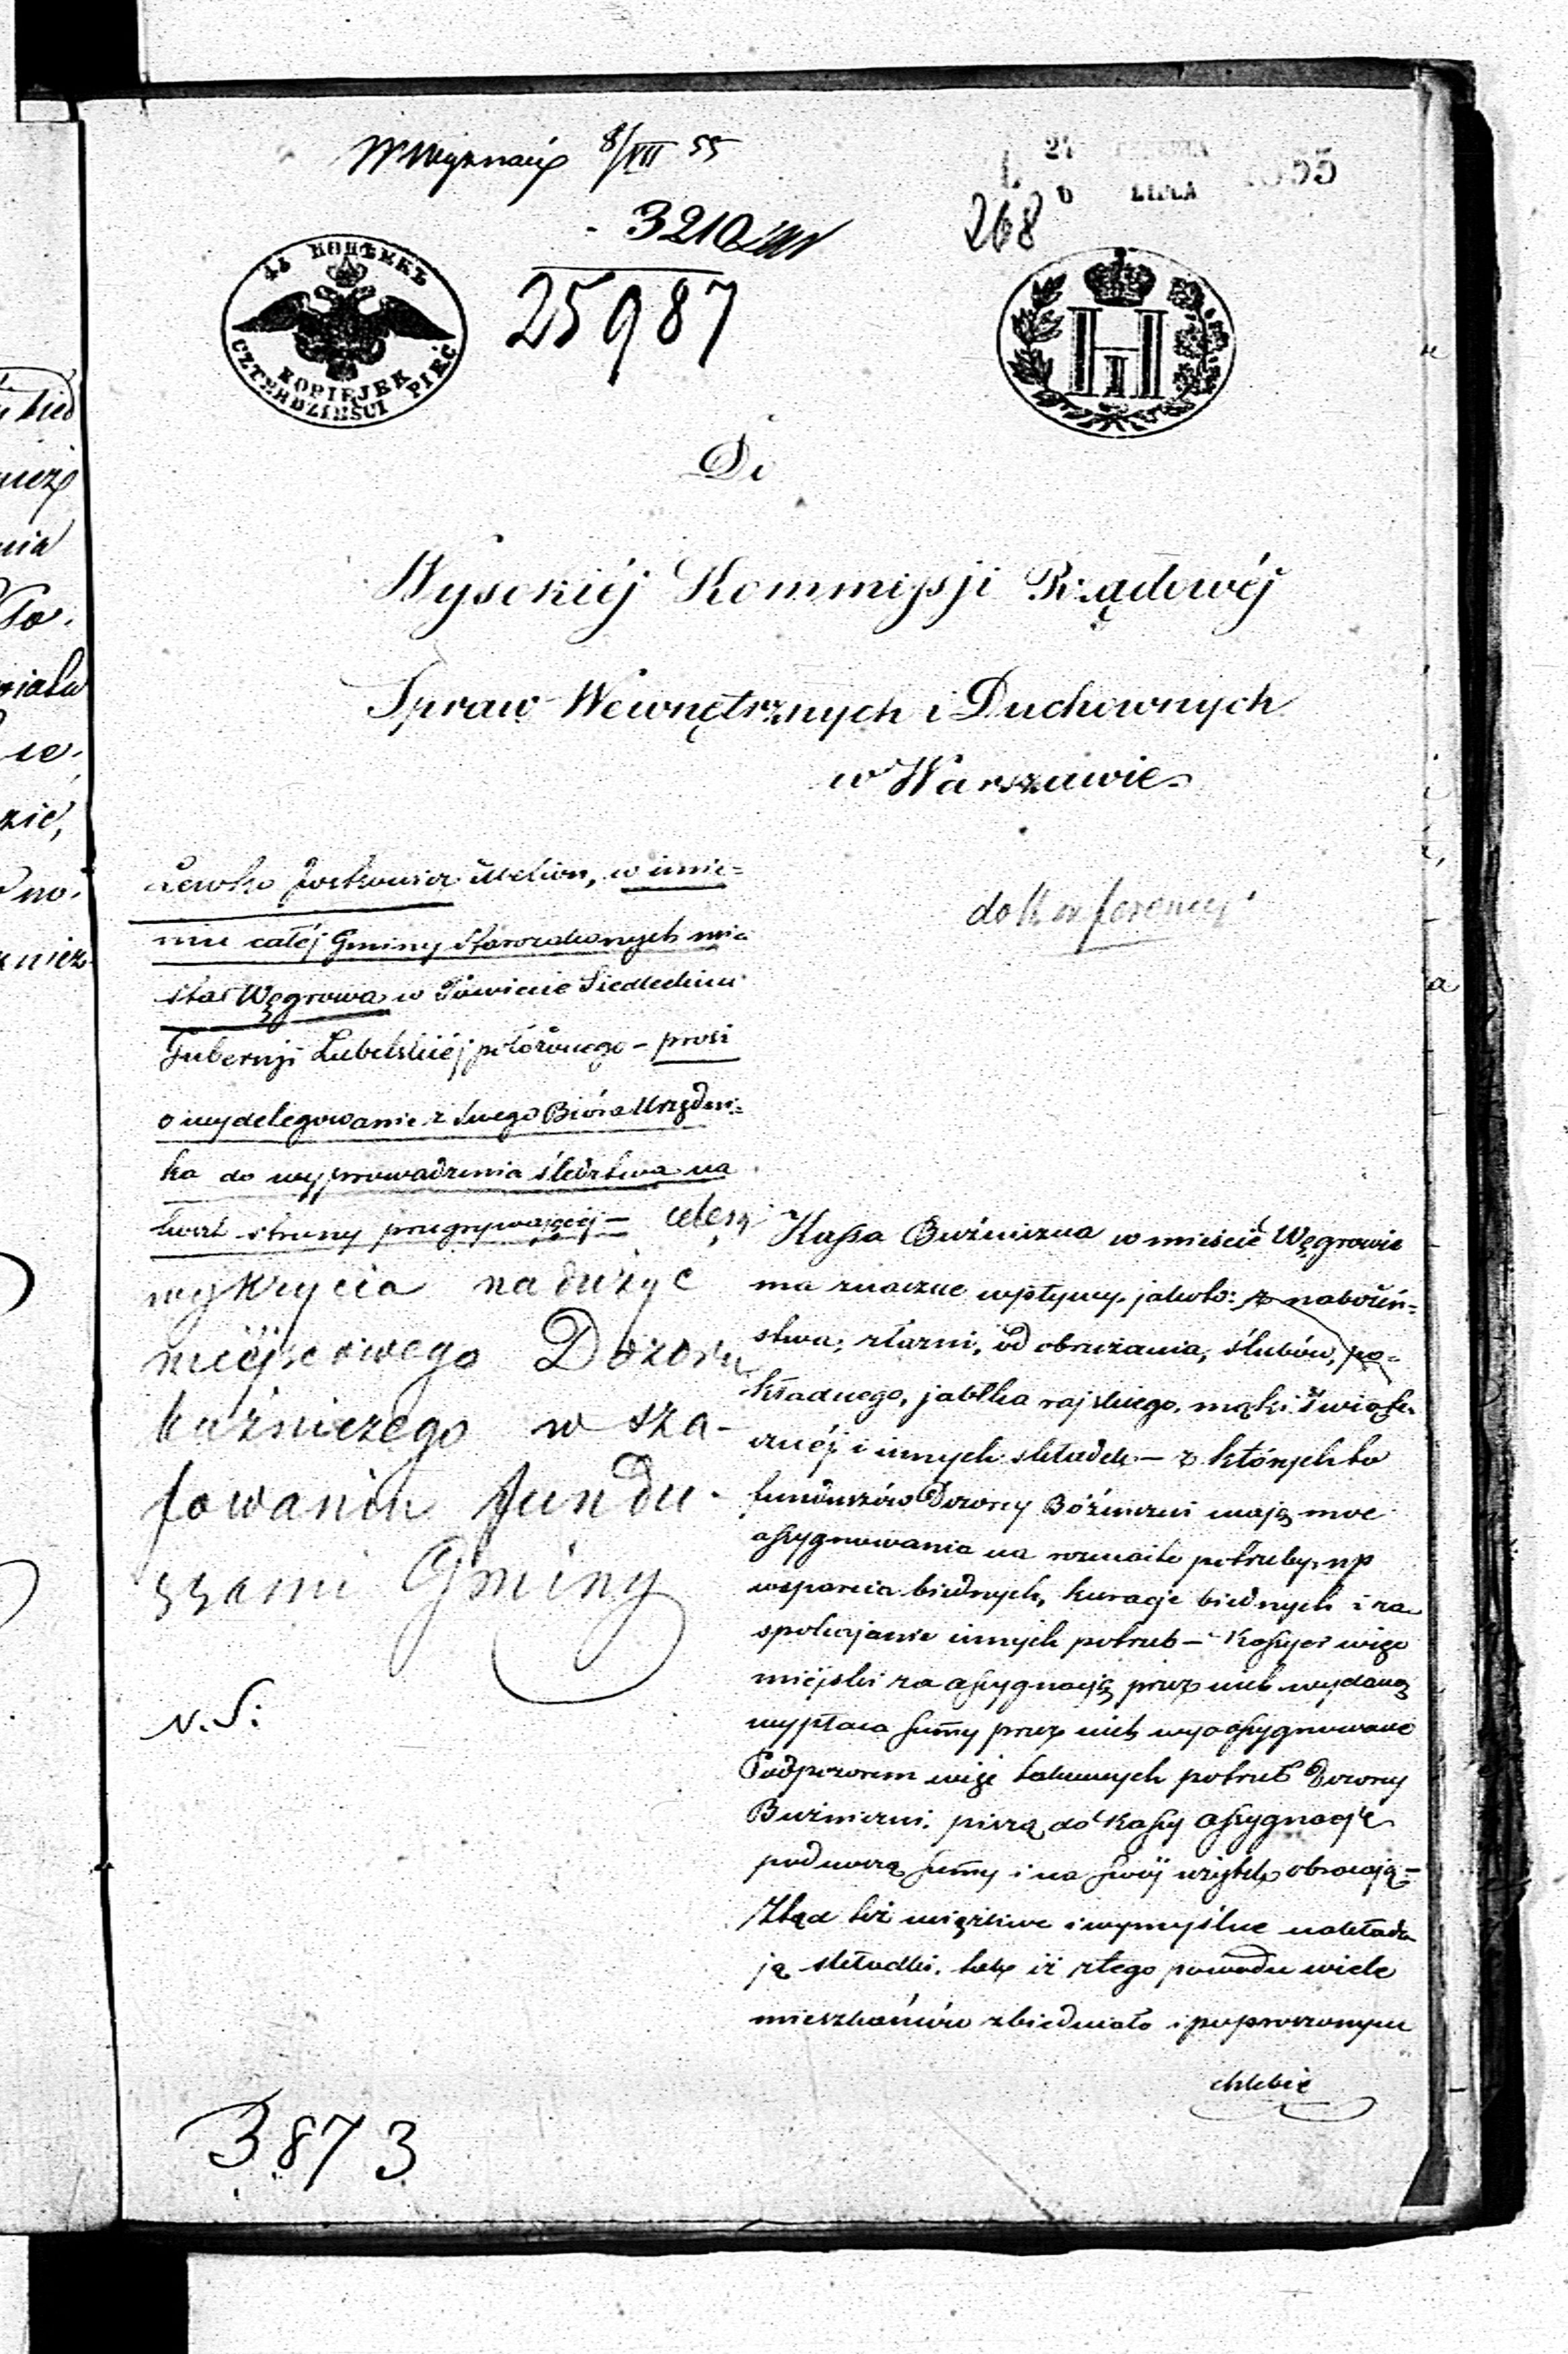 W Wyznań 8/VII 55
3210
25987
24
6 LIPCA 1855
268
45 КОПѢЕКЪ
KOPIEJEK
CZTERDZIEŚCI PIĘĆ
H
I
Do
Wysokiéj Kommissji Rządowéj
Spraw Wewnętrznych i Duchownych
w Warszawie
Lewko Joskowicz w imie=
niu całéj Gminy Starozakonnych mia
sta Węgrowa w Powiecie Siedleckim
Gubernji Lubelskiéj położonego – prosi
o wydelegowanie z swego Bióra Urzędni=
ka do wyprowadzenia śledztwa na
koszt strony przegrywającéj – celem
wykrycia nadużyć
miéjscowego Dozoru
bużniczego w sza-
fowaniu fundu-
szami Gminy
N. S:
3873
do Konferencyi
Kassa Bużniczna w mieście Węgrowie
ma znaczne wpływy jakoto: z nabożeń=
stwa, od obrzezania, ślubów, po=
kładnego, jabłka rajskiego, mąki świąte
cznéj i innych składek – z których to
funduszów Dozory Bóżniczni mają moc
assygnowania na rozmaite potrzeby, np
wsparcia biednych, kuracje biednych i za
spokojanie innych potrzeb – Kassyer więc
miéjski za assygnacją przez nich wydaną
wypłaca summy przez nich wyassygnowane
Podpozorem więc takowych potrzeb Dozory
Bużniczni piszą do Kassy assygnacje
podnoszą summy i na swój użytek obracają –
Ztąd też uciążliwe i wymyślne nakłada
ją składki, tak iż z tego powodu wiele
mieszkańców zbiedniało i po proszonym
chlebie